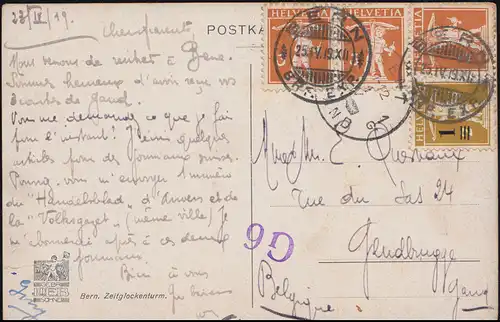 23/IV/19.
Chers parents
POSTKA
Nous venons de rentrer à
Sommes heureux d'avoir reçu vos
2 cartes de Gand.
Vous me demandez ce que je fais
pour l'instant? J'écris quelques
articles pour des journaux suisses.
Pourriez vous m'envoyer 1 numéro
du "Handelsblad" d'Anvers et de
la "Volksgazet" (même ville) Je
à ces deux
journaux.
Bien à vous
Bern. Zeitglockenturm.
HELVETIA
HELVETIA
HELVETIA
HELVETIA
BERN
25.IV.19.XII
BRF. EXP.
1
G6
Rue du Sas 24
Gendbrugge
Gand
Belgique